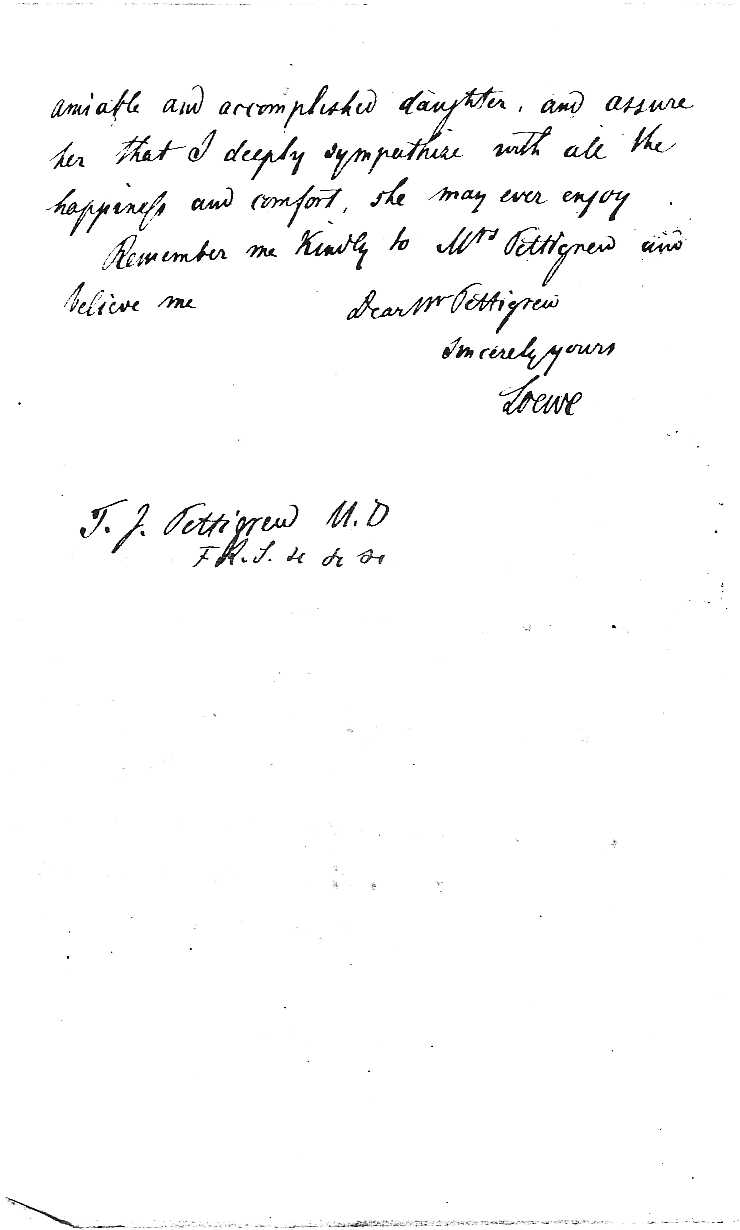 amiable and accomplished daughter, and assure
her that I deeply sympathize with all the
happiness and comfort, she may ever enjoy.
Remember me Kindly to Mrs Pettigrew and
believe me Dear Mr Pettigrew
Sincerely yours
Loewe
T. J. Pettigrew M.D
F.R.S. &c &c &c